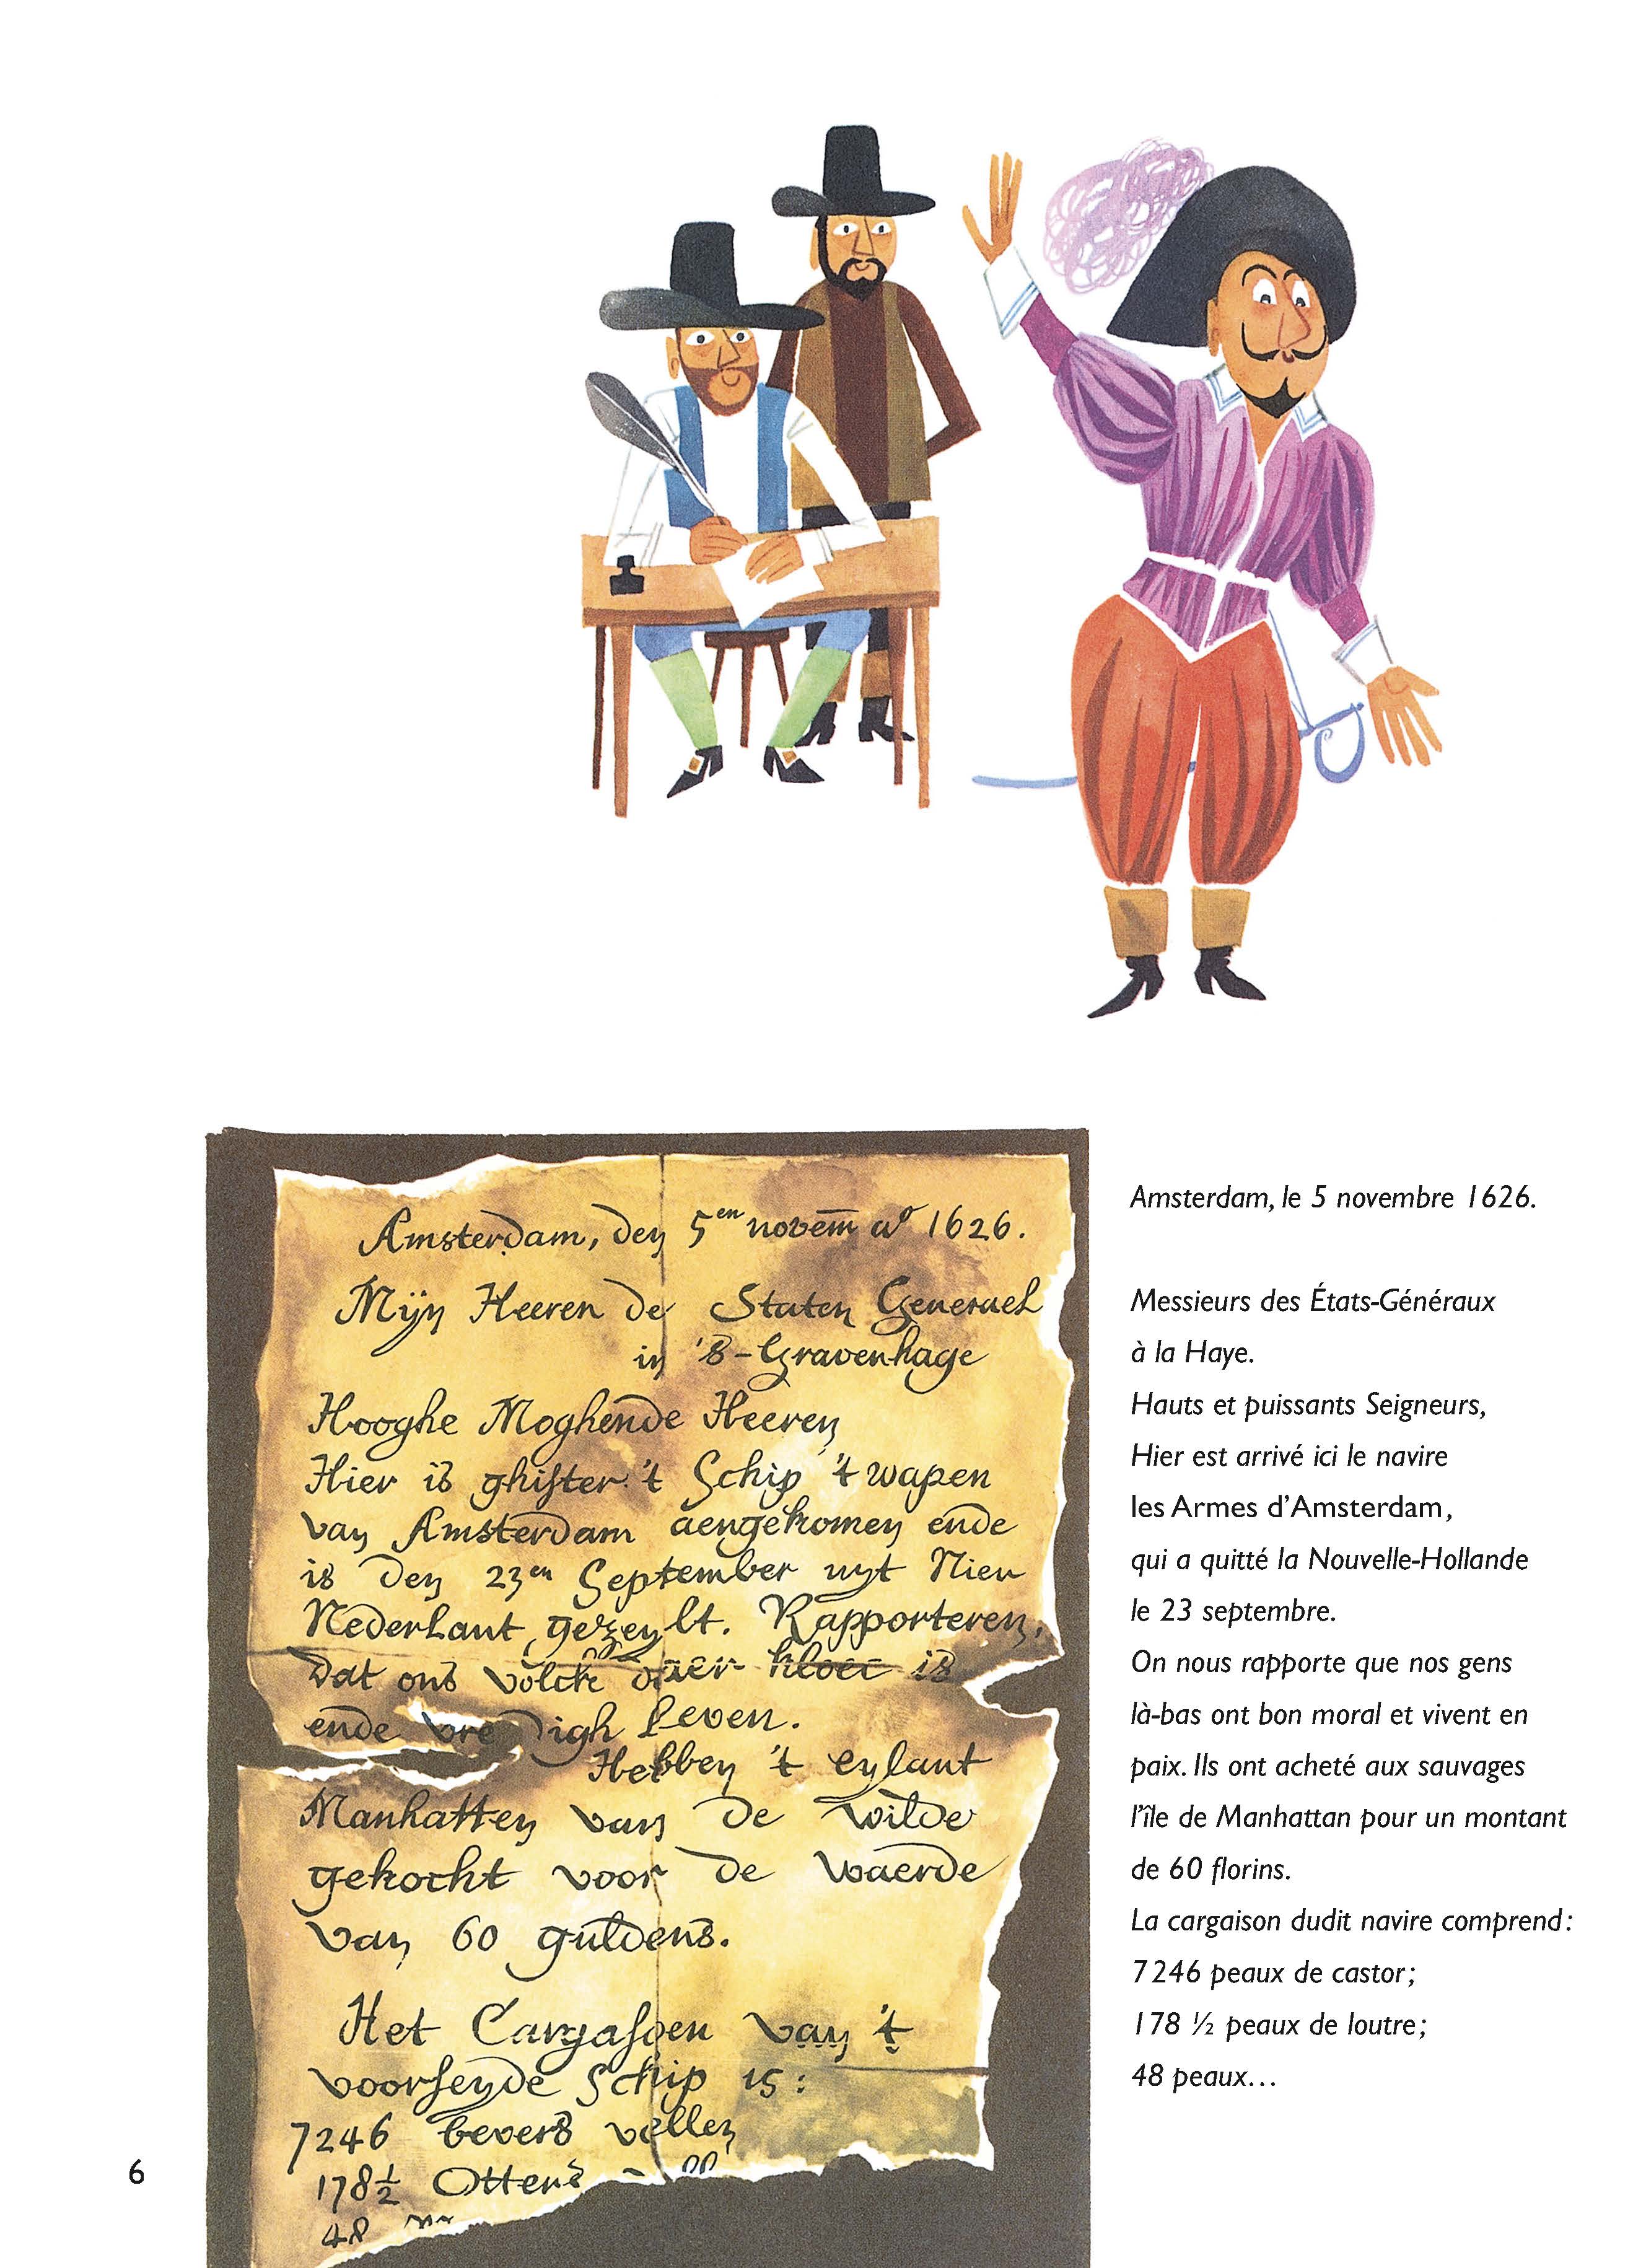 Amsterdam, den 5en novem̅ aº 1626.
Mijn Heeren de Staten Generael
in 's-Gravenhage
Hooghe Moghende Heeren
Hier is ghister 't Schip 't wapen
van Amsterdam aengekomen ende
is den 23en September uyt Nieu
Nederlant gezeylt. Rapporteren,
dat ons volck daer kloec is
ende vredigh leven.
Hebben 't eylant
Manhatten van de wilde
gekocht voor de waerde
van 60 guldens.
Het Cargasoen van 't
voorseyde Schip is:
7246 bevers vellen
178½ Otters
48
Amsterdam, le 5 novembre 1626.
Messieurs des États-Généraux
à la Haye.
Hauts et puissants Seigneurs,
Hier est arrivé ici le navire
les Armes d'Amsterdam,
qui a quitté la Nouvelle-Hollande
le 23 septembre.
On nous rapporte que nos gens
là-bas ont bon moral et vivent en
paix. Ils ont acheté aux sauvages
l'île de Manhattan pour un montant
de 60 florins.
La cargaison dudit navire comprend :
7 246 peaux de castor ;
178 ½ peaux de loutre ;
48 peaux…
6